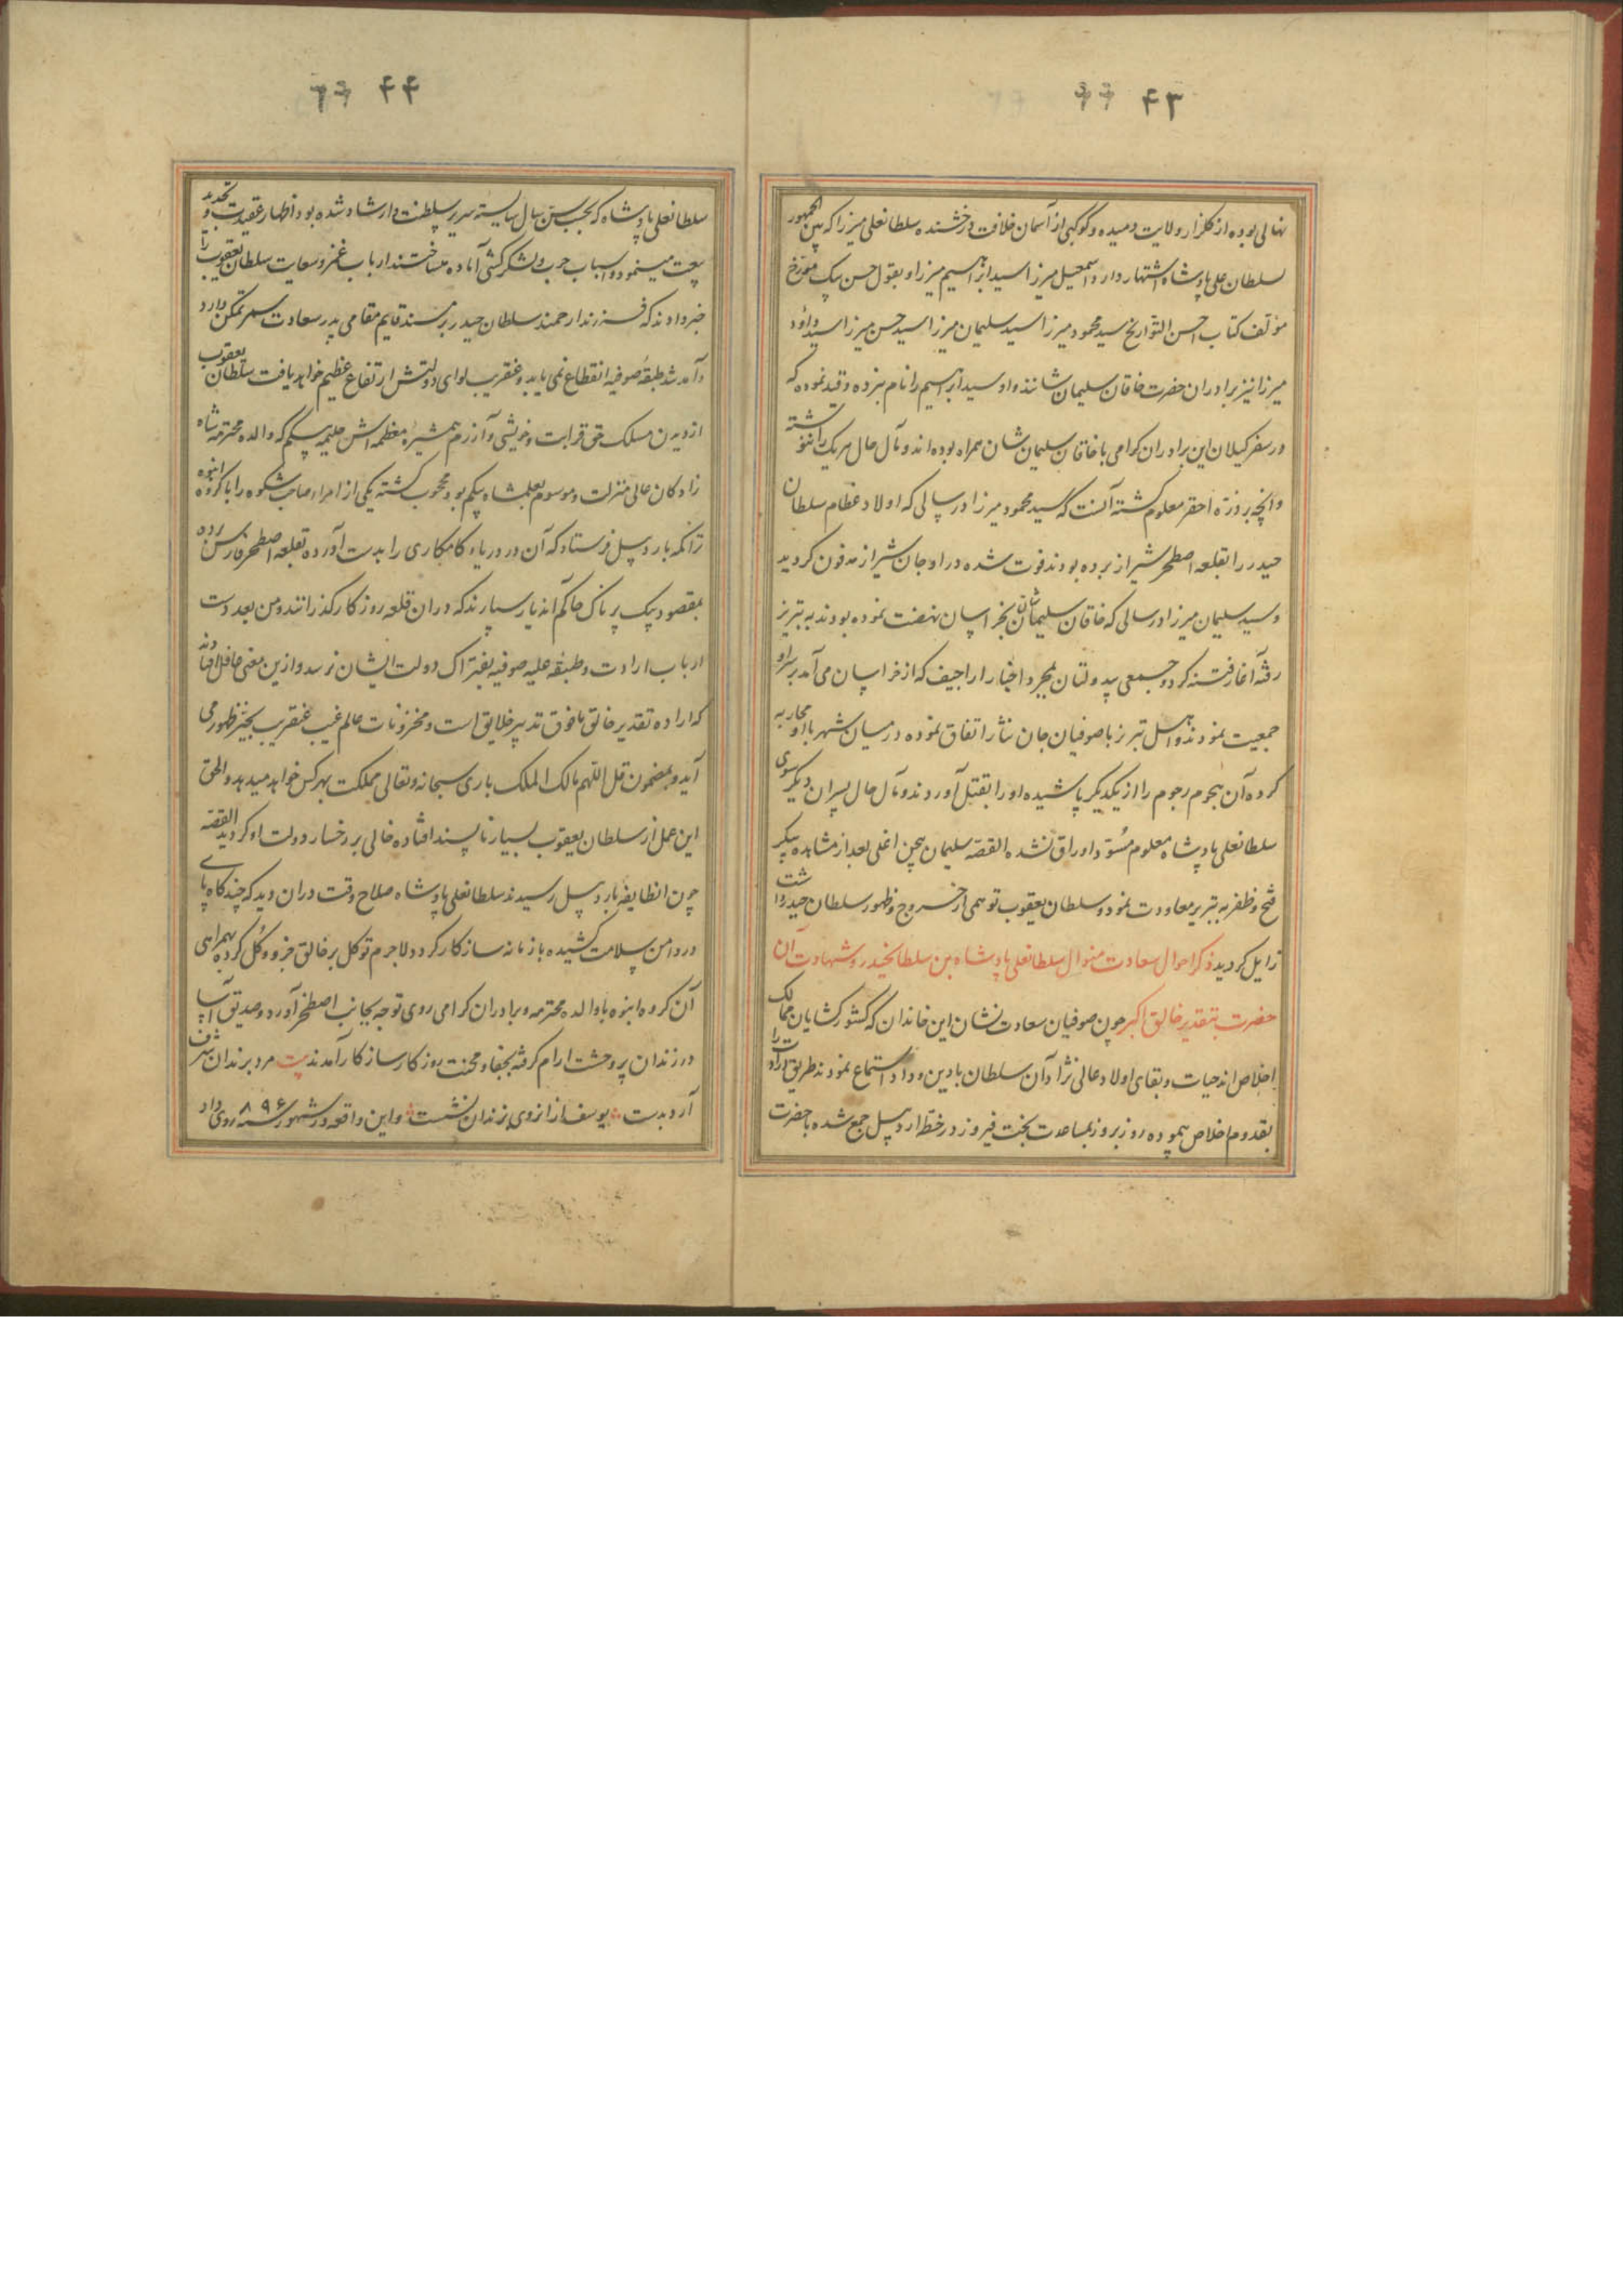 ۴۳
نهالی بوده از گلزار ولایت دمیده و کوکبی از آسمان خلافت درخشنده سلطانعلی میرزا که بین الجمهور
بسلطان علی پادشاه اشتهار دارد و اسمعیل میرزا سید ابراهیم میرزا و بقول حسن بیک مورخ
مؤلف کتاب احسن التواریخ سید محمود میرزا سید سلیمان میرزا سید حسن میرزا سید داود
میرزا نیز برادران حضرت خاقان سلیمان شانند و او سید ابراهیم را نام نبرده و قید نموده که
در سفر کیلان این برادران کرامی با خاقان سلیمان شان همراه بوده‌اند و مآل حال هریک را ننوشته
و آنچه بر ذره احقر معلوم کشته آنست که سید محمود میرزا در سالی که اولاد عظام سلطان
حیدر را بقلعه اصطخر شیراز برده بودند فوت شده در اوجان شیراز مدفون کردید
و سید سلیمان میرزا در سالی که خاقان سلیمان شان بخراسان نهضت نموده بودند به تبریز
رفته آغاز فتنه کرد و جمعی بیدولتان بمجرد اخبار اراجیف که از خراسان می آمد بر سر او
جمعیت نمودند و اهل تبریز با صوفیان جان نثار اتفاق نموده در میان شهر با او محاربه
کرده آن نجوم رجوم را از یکدیکر پاشیده او را بقتل آوردند و مآل حال پسران دیکر سوی
سلطانعلی پادشاه معلوم مسوّد اوراق نشده القصه سلیمان بیجن اغلی بعد از مشاهده پیکر
فتح و ظفر به تبریز معاودت نمود و سلطان یعقوب توهمی از خروج و ظهور سلطان حیدر داشت
زایل کردید ذکر احوال سعادت منوال سلطانعلی پادشاه بن سلطانحیدر و شهادت آن
حضرت بتقدیر خالق اکبر چون صوفیان سعادت نشان این خاندان که کشورکشایان ممالک
اخلاص‌اند حیات و بقای اولاد عالی نژاد آن سلطان بادین و داد استماع نمودند طریق ارادت را
بقدوم اخلاص پیموده روز بروز بمساعدت بخت فیروز در خطه اردبیل جمع شده با حضرت
۴۴
سلطانعلی پادشاه که بحسب سن و سال شایسته سریر سلطنت و ارشاد شده بود اظهار عقیدت و تجدید
بیعت مینمود و اسباب حرب و لشکرکشی آماده میساختند ارباب غمز و سعایت سلطان یعقوب را
خبر دادند که فرزند ارجمند سلطان حیدر بر مسند قایم مقامی پدر سعادت سمر تمکن دارد
و آمد شد طبقه صوفیه انقطاع نمی یابد و عنقریب لوای دولتش ارتفاع عظیم خواهد یافت سلطان یعقوب
ازدیدن مسلک حق قرابت و خویشی و آزرم همشیره معظمه اش حلیمه بیکم که والده محترمه شاه
زادکان عالی منزلت و موسوم بعلمشاه بیکم بود محجوب کشته یکی از امراء صاحب شکوه را با کروه انبوه
تراکمه باردبیل فرستاد که آن درر دریای کامکاری را بدست آورده بقلعه اصطخر فارس برده
بمقصود بیک پرناک حاکم آندیار سپارند که در ان قلعه روزکار کذرانند و من بعد دست
ارباب ارادت و طبقه علیه صوفیه بفتراک دولت ایشان نرسد و ازین معنی غافل افتادند
که اراده تقدیر خالق مافوق تدبیر خلایق است و مخزونات عالم غیب عنقریب بحیز ظهور می
آید و بمضمون قل اللهم مالک الملک باری سبحانه و تعالی مملکت بهر کس خواهد میدهد و الحق
این عمل از سلطان یعقوب بسیار ناپسند افتاده خالی بر رخسار دولت او کردید القصه
چون انطایفه باردبیل رسیدند سلطانعلی پادشاه صلاح وقت در ان دید که چندکاه پای
در دامن سلامت کشیده با زمانه سازکار کردد لاجرم توکل بر خالق جزو و کل کرده بهمراهی
آن کروه انبوه با والده محترمه و برادران کرامی روی توجه بجانب اصطخر آورد و صدیق آسا
در زندان پر وحشت ارام کرفته بجفا و محنت روزکار ساز کار آمدند بیت مرد بزندان شرف
آرد بدست یوسف ازانروی بزندان نشست و این واقعه در شهور سنه ۸۹۶ روی داد